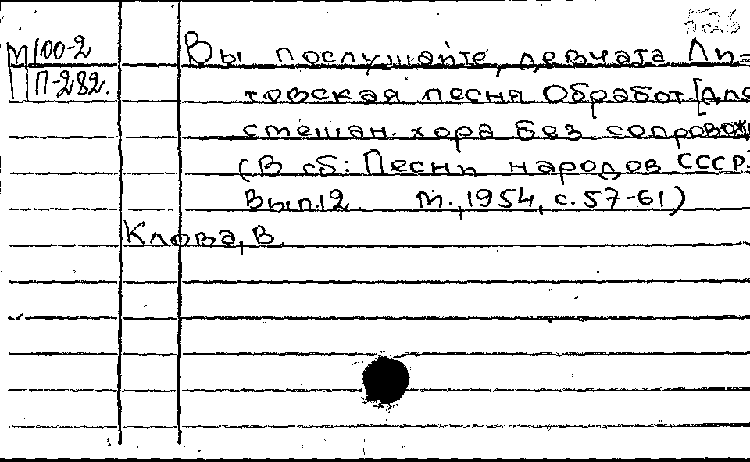 М 100-2
П-282.
Вы послушайте, девчата Ли=
товская песня Обработ. [для
смешан. хора без сопровож
(В сб: Песни народов СССР.
Вып.12. М.,1954, с.57-61)
Клова, В.